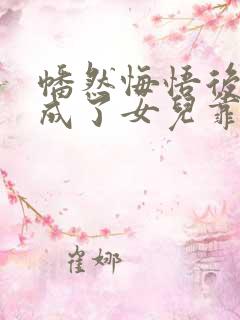 幡然悔悟後
成了女兒靠
崔娜